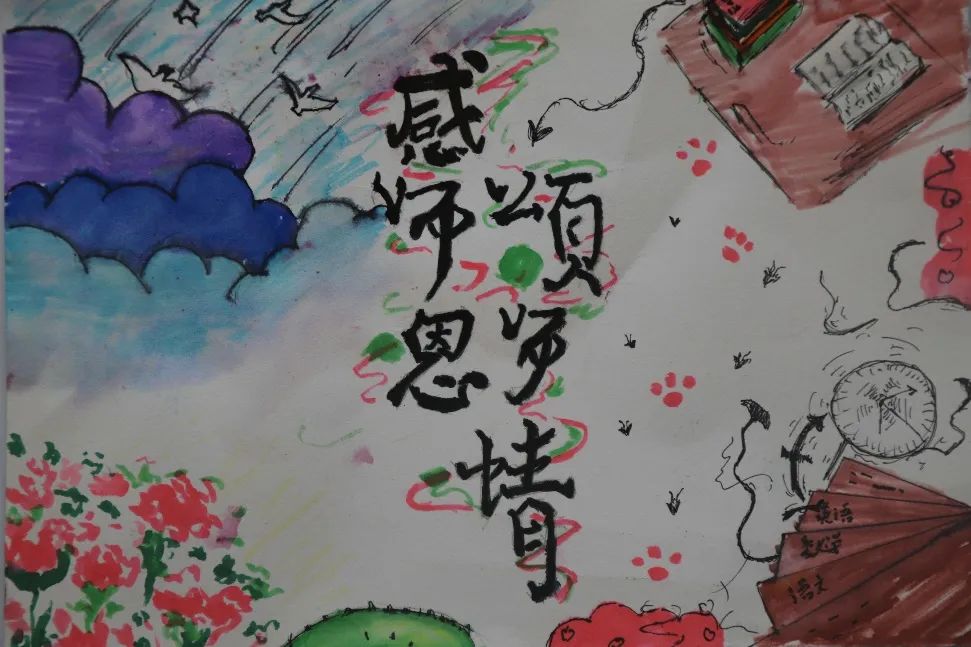 感师恩
頌师情
英语
数学
语文